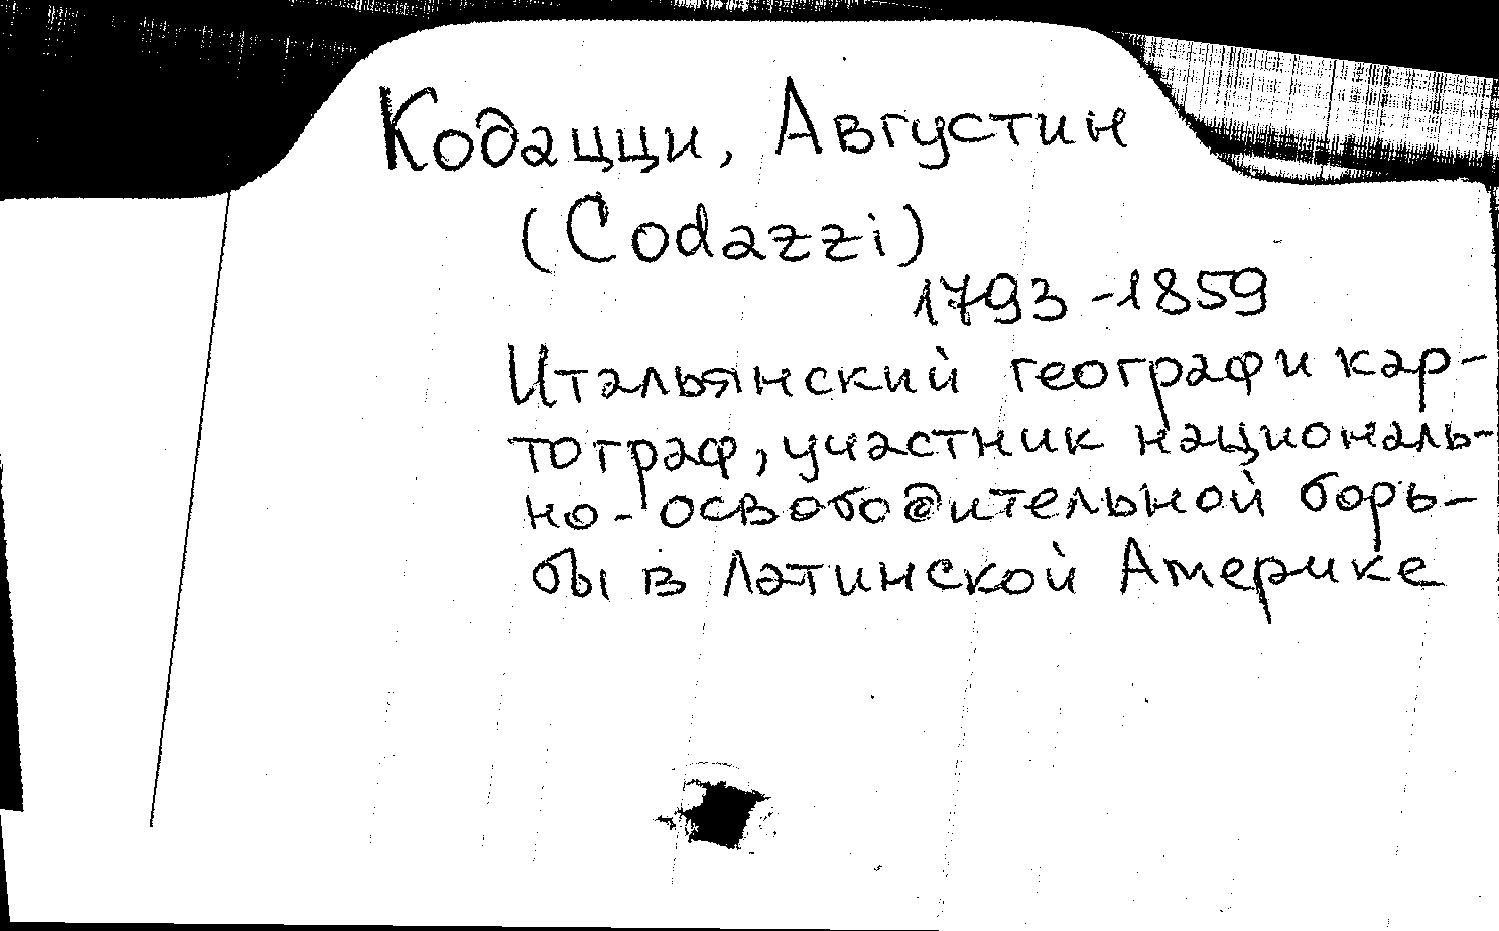 Кодацци, Августин
(Codazzi)
1793-1859
Итальянский географ и кар-
тограф, участник националь-
но-освободительной борь-
бы в Латинской Америке